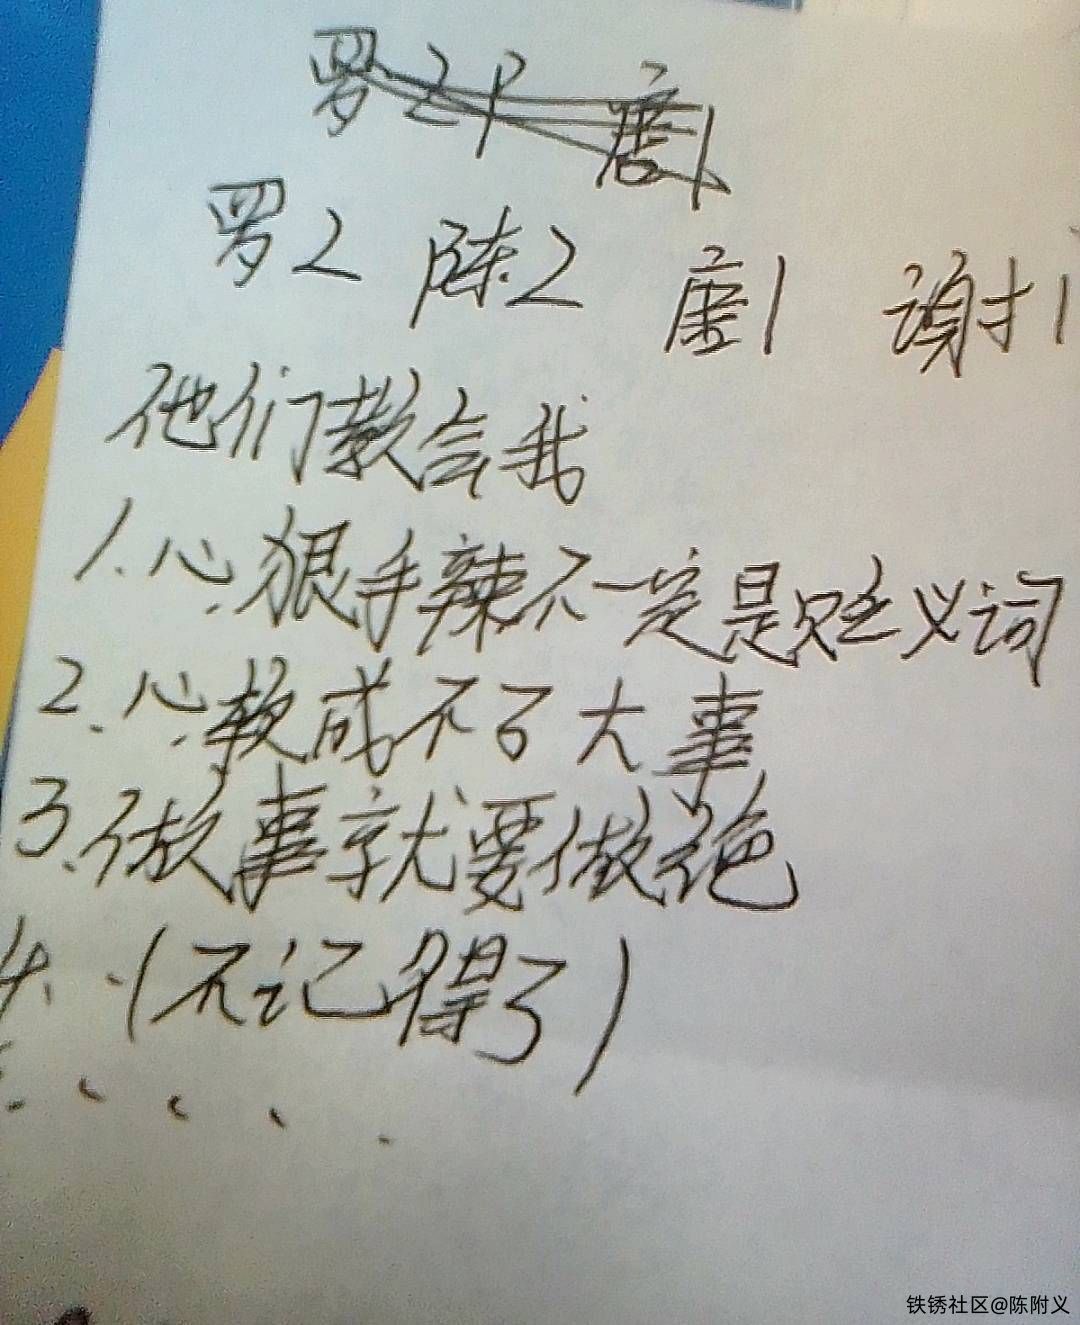 罗2 陈2 唐1 谢1
他们教会我
1.心狠手辣不一定是贬义词
2.心软成不了大事
3.做事就要做绝
4.(不记得了)
.....
铁锈社区@陈附义